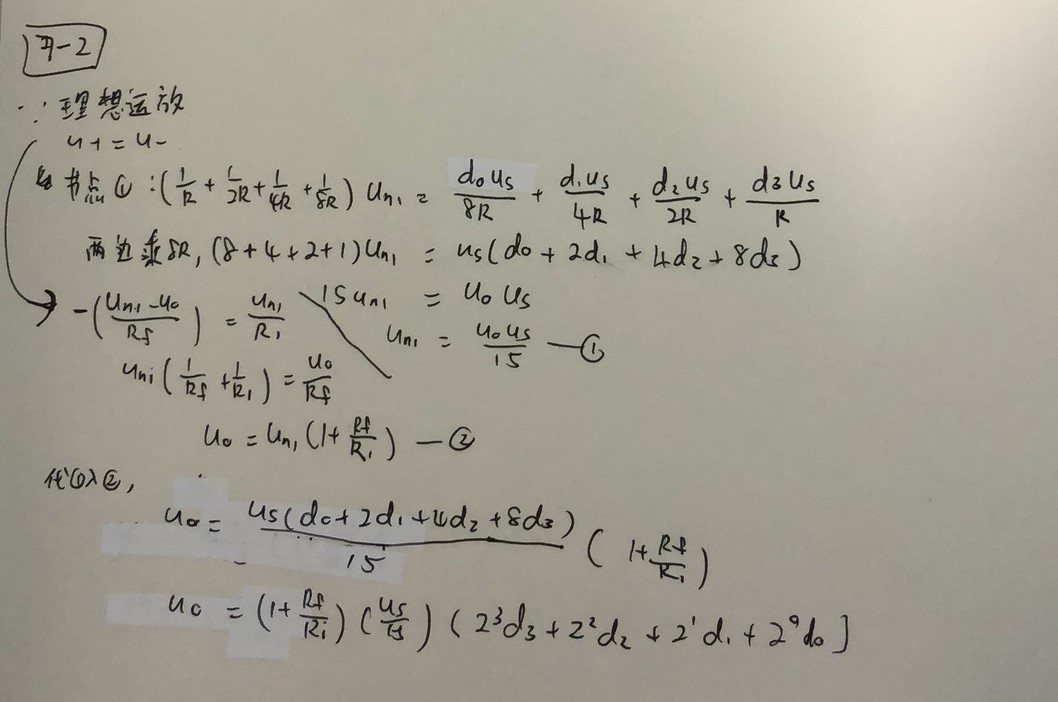 7-2
∵理想运放
u+ = u-
节点①:(1/R + 1/2R + 1/4R + 1/8R) Un1 = d0us/8R + d1us/4R + d2us/2R + d3us/R
两边乘8R, (8+4+2+1)Un1 = us(d0 + 2d1 + 4d2 + 8d3)
-(Un1-u0/Rf) = Un1/R1 15un1 = u0us
un1 = u0us/15 —①
un1(1/Rf + 1/R1) = u0/Rf
u0 = Un1(1+Rf/R1) —②
代①入②,
u0 = us(d0+2d1+4d2+8d3)/15 (1+Rf/R1)
u0 = (1+Rf/R1)(us/15)(2³d3 + 2²d2 + 2¹d1 + 2⁰d0]